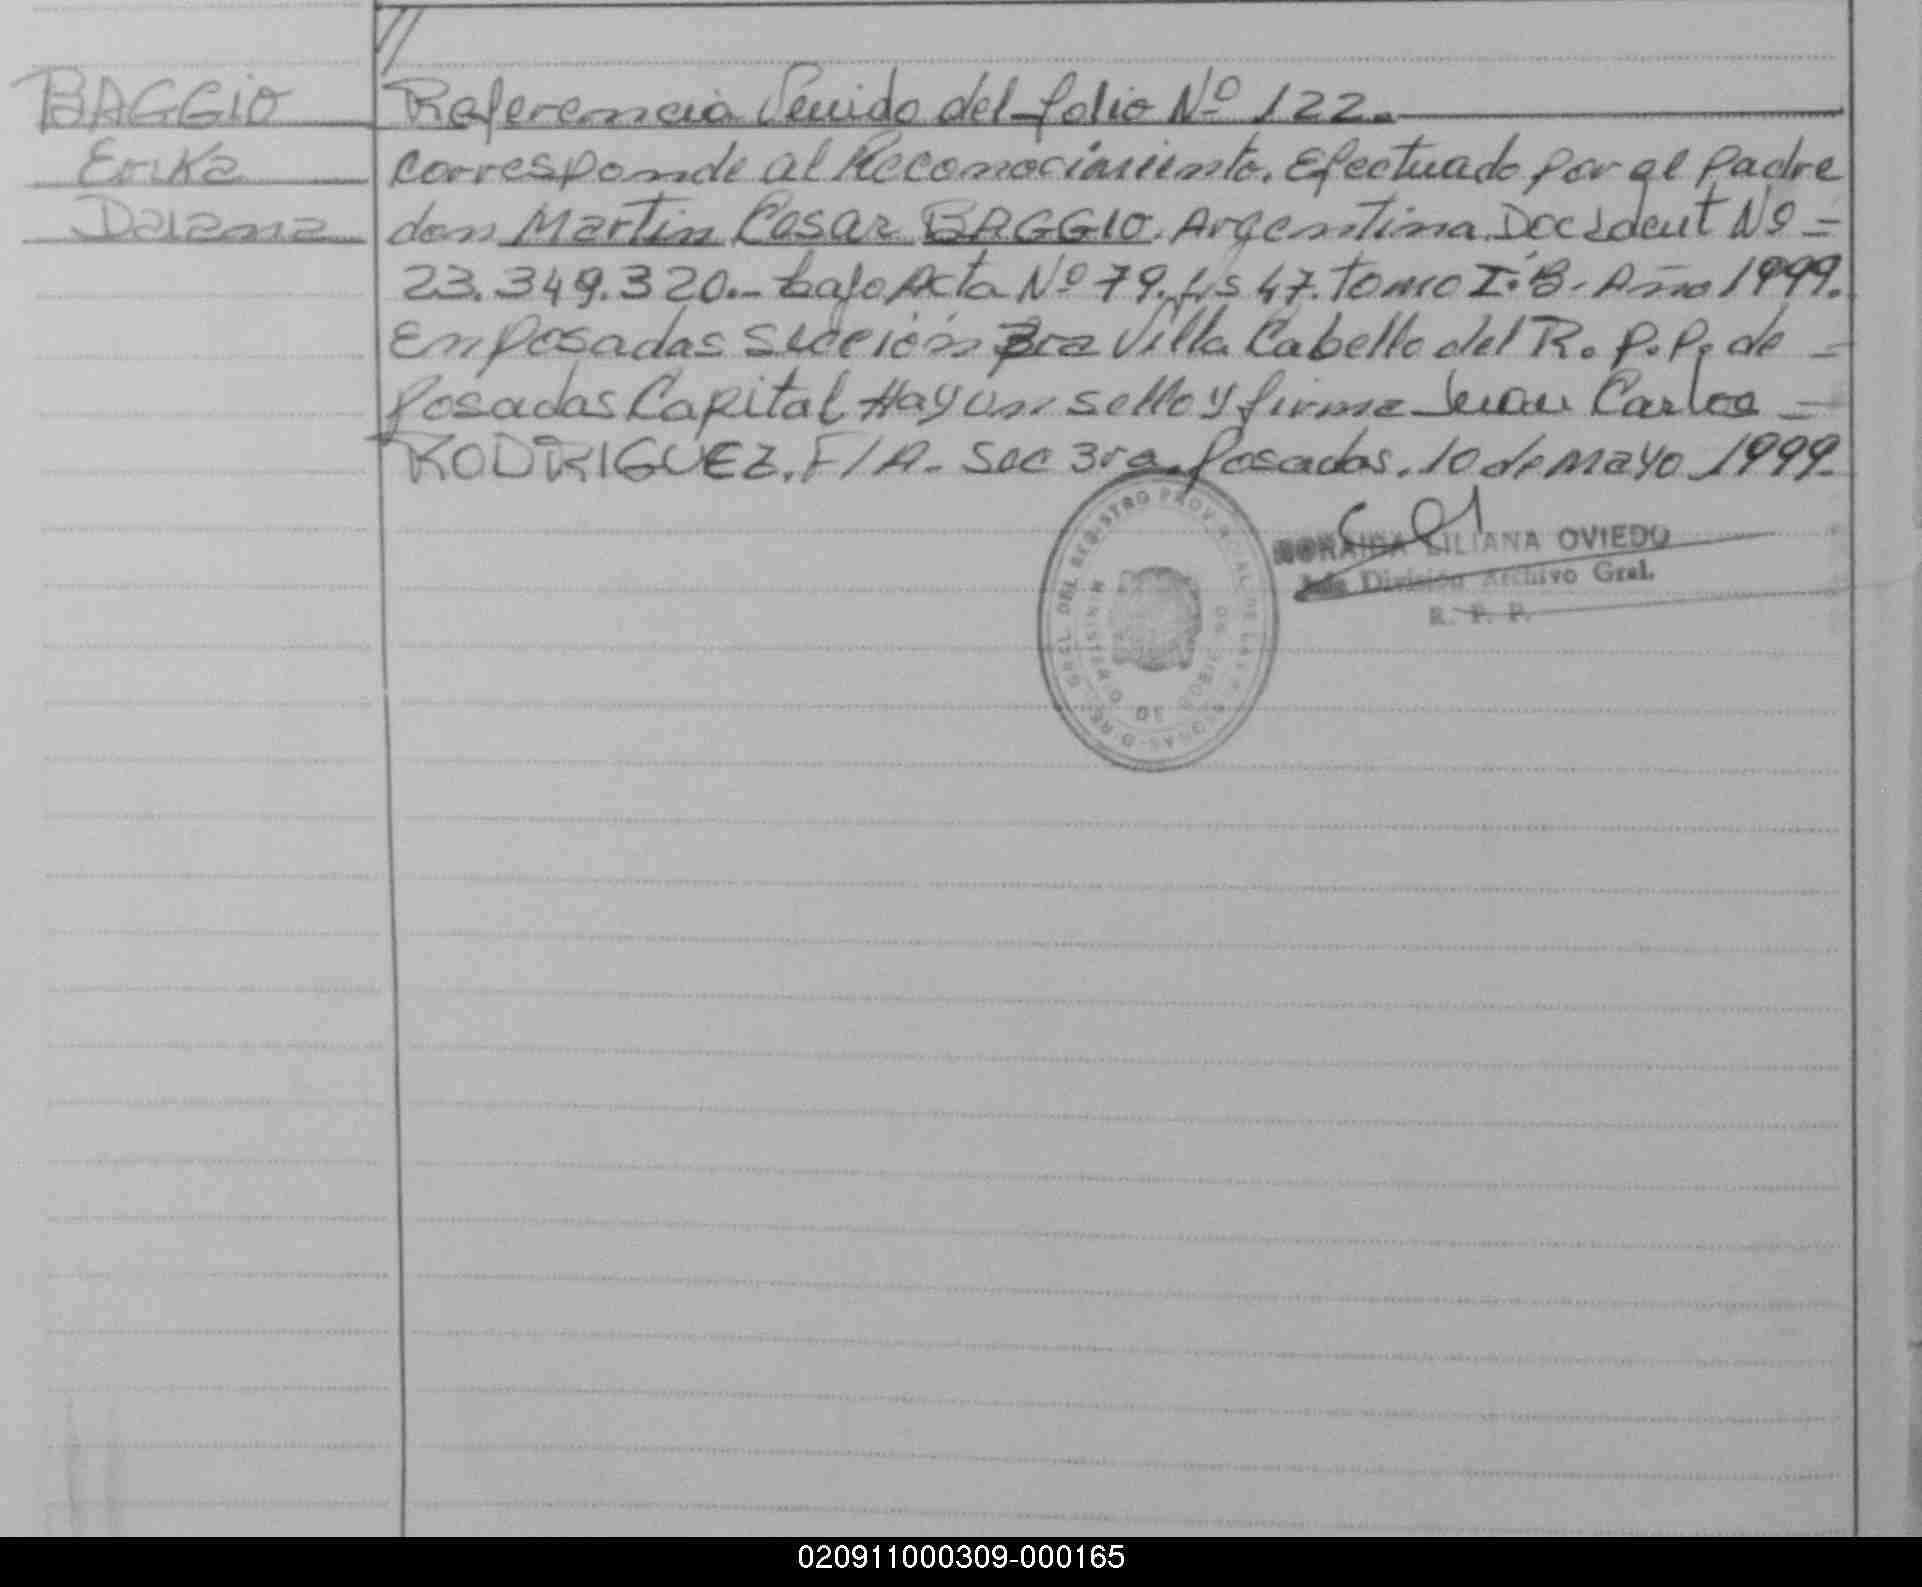 BAGGIO
Erika
Daiana
//
Referencia Venido del folio Nº 122.
corresponde al Reconocimiento. Efectuado por el Padre
don Martin Cesar BAGGIO. Argentina. Doc Ident Nº =
23.349.320.- bajo Acta Nº 79. Fs 47. Tomo I.B. Año 1999.
En Posadas sección 3ra Villa Cabello del R. P. P. de =
Posadas Capital Hay un sello y firma Juan Carlos =
RODRIGUEZ. F/A. Sec 3ra. Posadas. 10 de Mayo 1999.
LILIANA OVIEDO
Jefe División Archivo Gral.
R. P. P.
GRAL. DEL REGISTRO PROVINCIAL DE LAS PERSONAS
MINISTERIO DE GOBIERNO
020911000309-000165